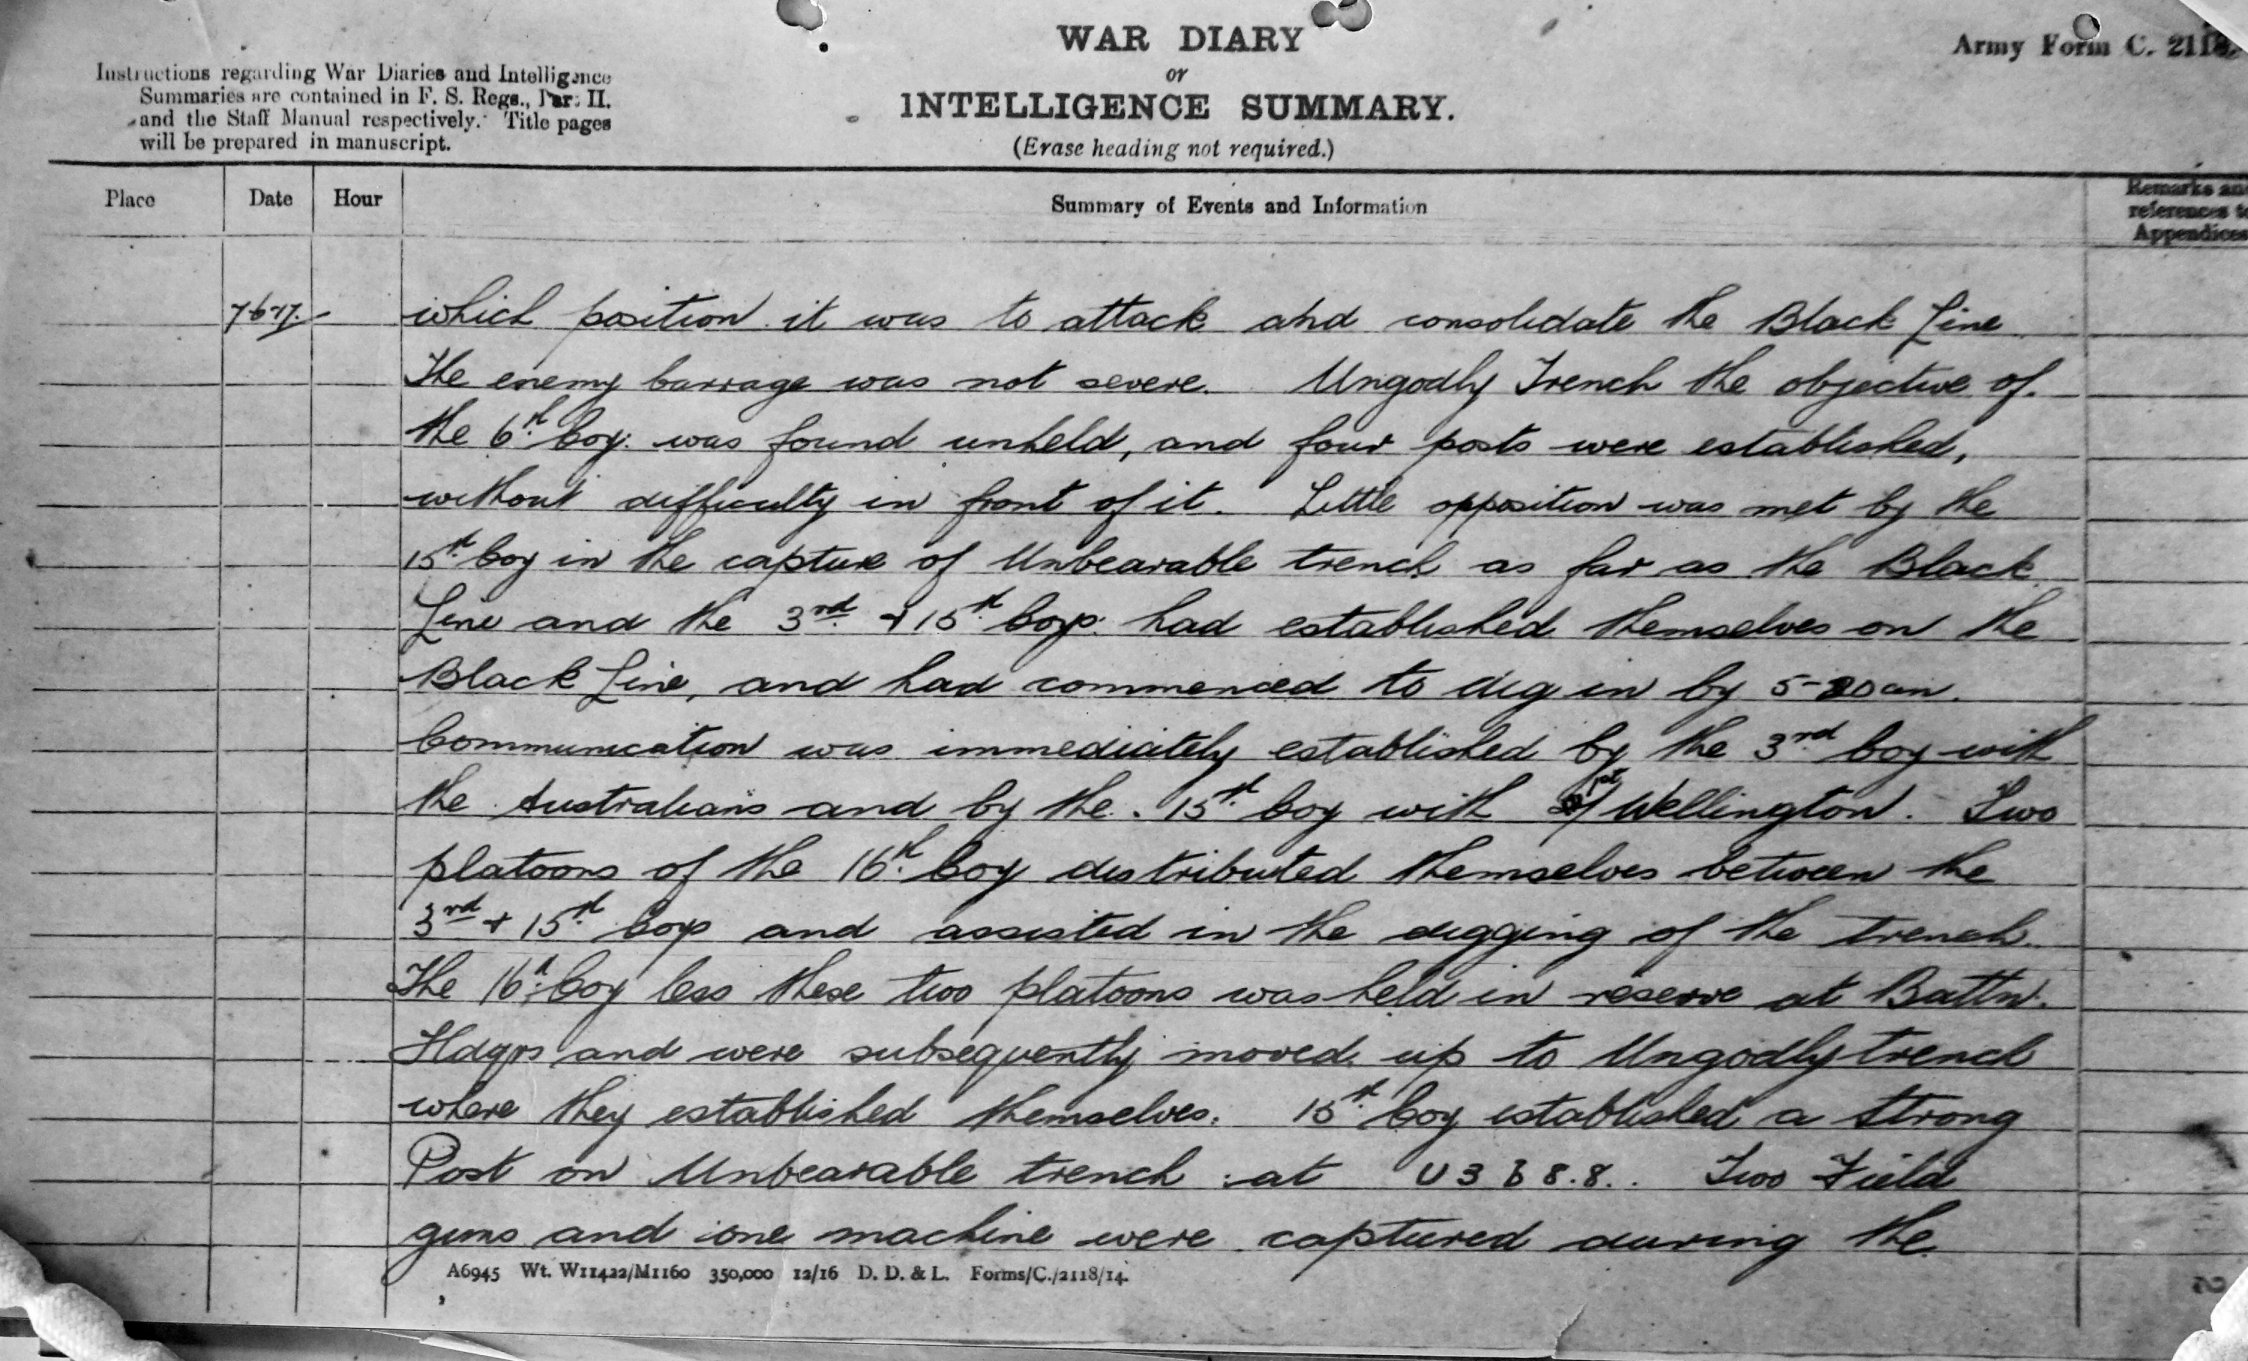 WAR DIARY
or
INTELLIGENCE SUMMARY.
(Erase heading not required.)
Army Form C. 2118.
Instructions regarding War Diaries and Intelligence
Summaries are contained in F. S. Regs., Part II.
and the Staff Manual respectively. Title pages
will be prepared in manuscript.
Place Date Hour Summary of Events and Information Remarks and
references to
Appendices
7-6-17. which position it was to attack and consolidate the Black Line
The enemy barrage was not severe. Ungodly Trench the objective of
the 6th Coy: was found unheld, and four posts were established,
without difficulty in front of it. Little opposition was met by the
15th Coy in the capture of Unbearable trench as far as the Black
Line and the 3rd + 15th Coys: had established themselves on the
Black Line, and had commenced to dig in by 5-20 am.
Communication was immediately established by the 3rd Coy with
the Australians and by the 15th Coy with 1st Wellington. Two
platoons of the 16th Coy distributed themselves between the
3rd + 15th Coys and assisted in the digging of the trench.
The 16th Coy less these two platoons was held in reserve at Battn.
Hdqrs and were subsequently moved up to Ungodly trench
where they established themselves. 15th Coy established a strong
Post on Unbearable trench at U 3 b 8.8.. Two Field
guns and one machine were captured during the
A6945 Wt. W11422/M1160 350,000 12/16 D. D. & L. Forms/C./2118/14.